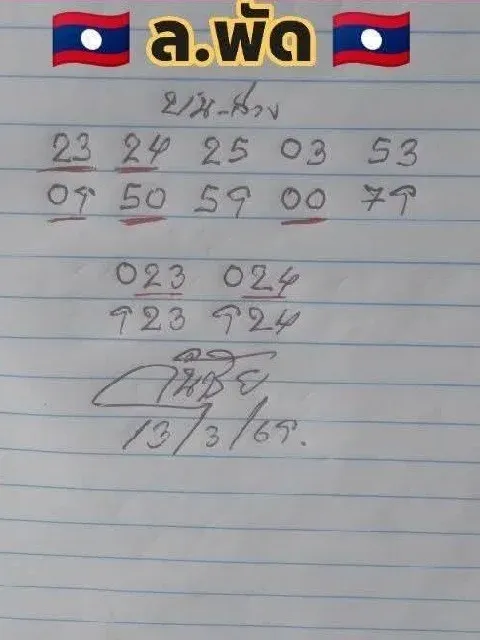 ล.พัด
บน-ล่าง
23 24 25 03 53
09 50 59 00 79
023 024
923 924
13/3/69.